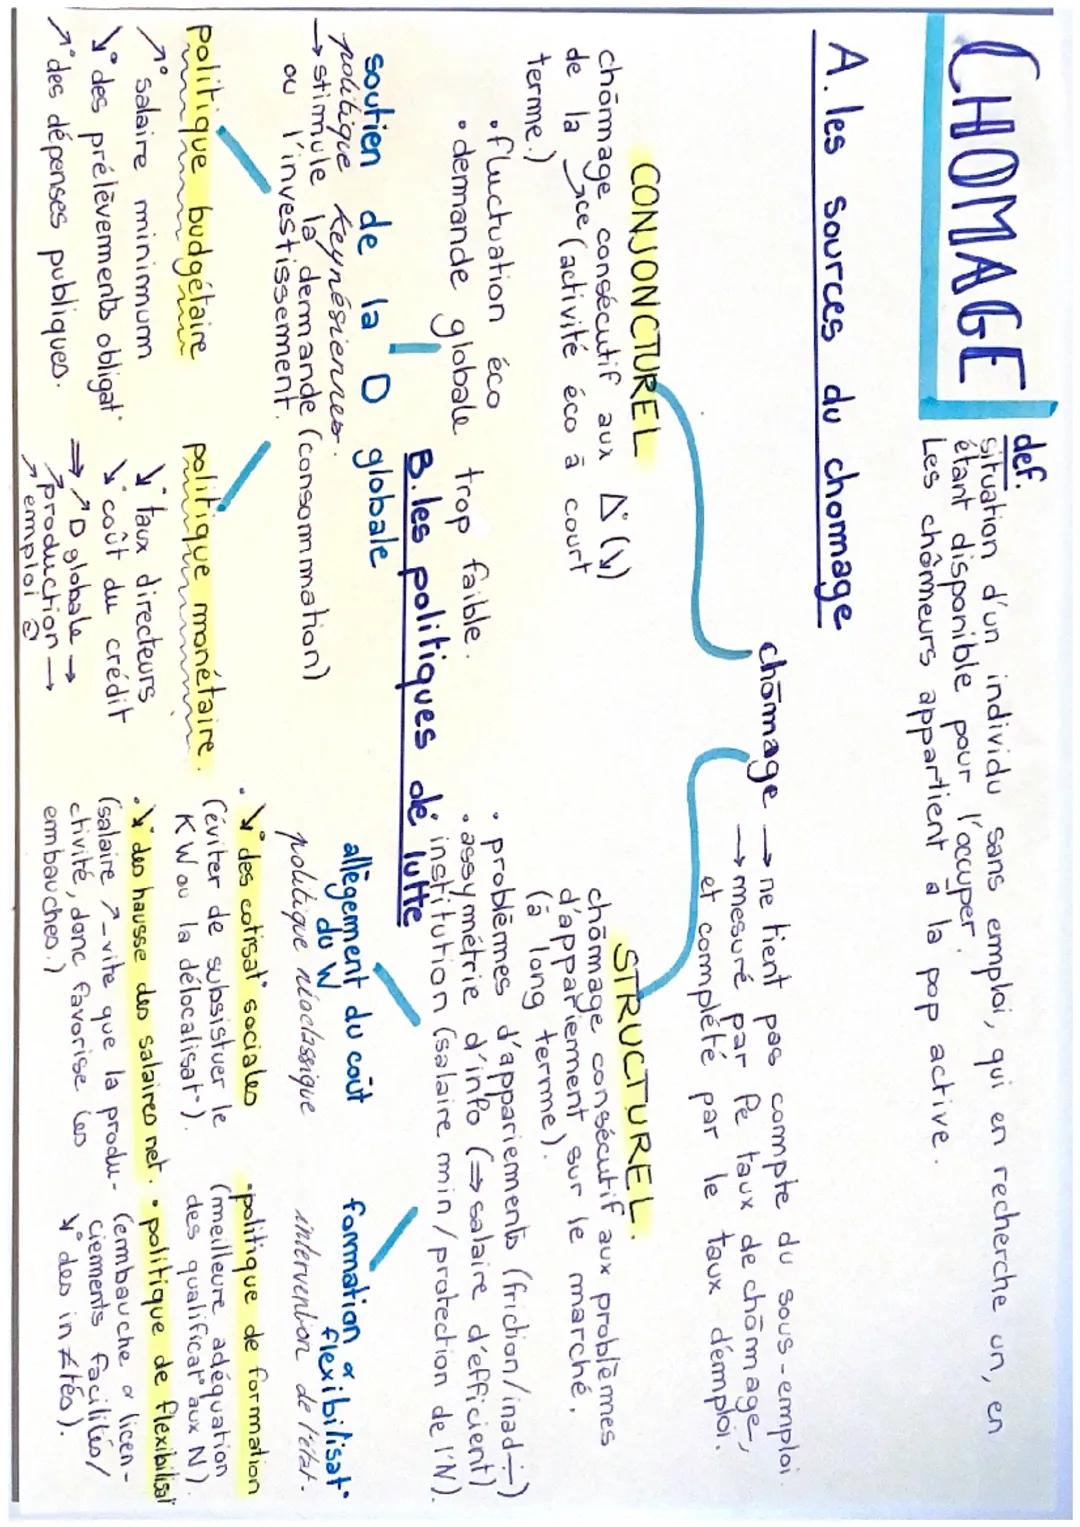 CHOMAGE
def.
situation d'un individu sans emploi, qui en recherche un, en
étant disponible pour l'occuper.
Les chômeurs appartient a la pop active.
A. les sources du chomage
chômage → ne tient pas compte du sous-emploi
→ mesuré par le taux de chômage,
et complété par le taux d'emploi.
CONJONCTUREL
chômage consécutif aux Δ° (↘)
de la (activité éco à court
terme.)
• fluctuation éco
• demande globale trop faible.
STRUCTUREL.
chômage consécutif aux problèmes
d'appariement sur le marché.
(à long terme).
• problèmes d'appariements (friction/inad÷)
• assymétrie d'info (⇒ salaire d'efficient)
• institution (salaire min / protection de l'N).
B. les politiques de lutte
soutien de la D globale
politique keynésiennes.
→ stimule la demande (consommation)
ou l'investissement.
politique budgétaire
↗° salaire minimum
↘° des prélèvements obligat°
↗° des dépenses publiques.
politique monétaire.
↘° taux directeurs
↘° coût du crédit
⇒ ↗ D globale →
↗ production →
↗ emploi
allègement du coût
du W
politique néoclassique
• ↘° des cotisat° sociales
(éviter de subsistuer le
K W ou la délocalisat°).
• ↘° des hausse des salaires net.
(salaire ↗ - vite que la produ-
ctivité, donc favorise les
embauches.)
formation & flexibilisat°
intervention de l'état.
• politique de formation
(meilleure adéquation
des qualificat° aux N).
• politique de flexibilisat°
(embauche & licen-
ciements facilités/
↘° des in≠tés).